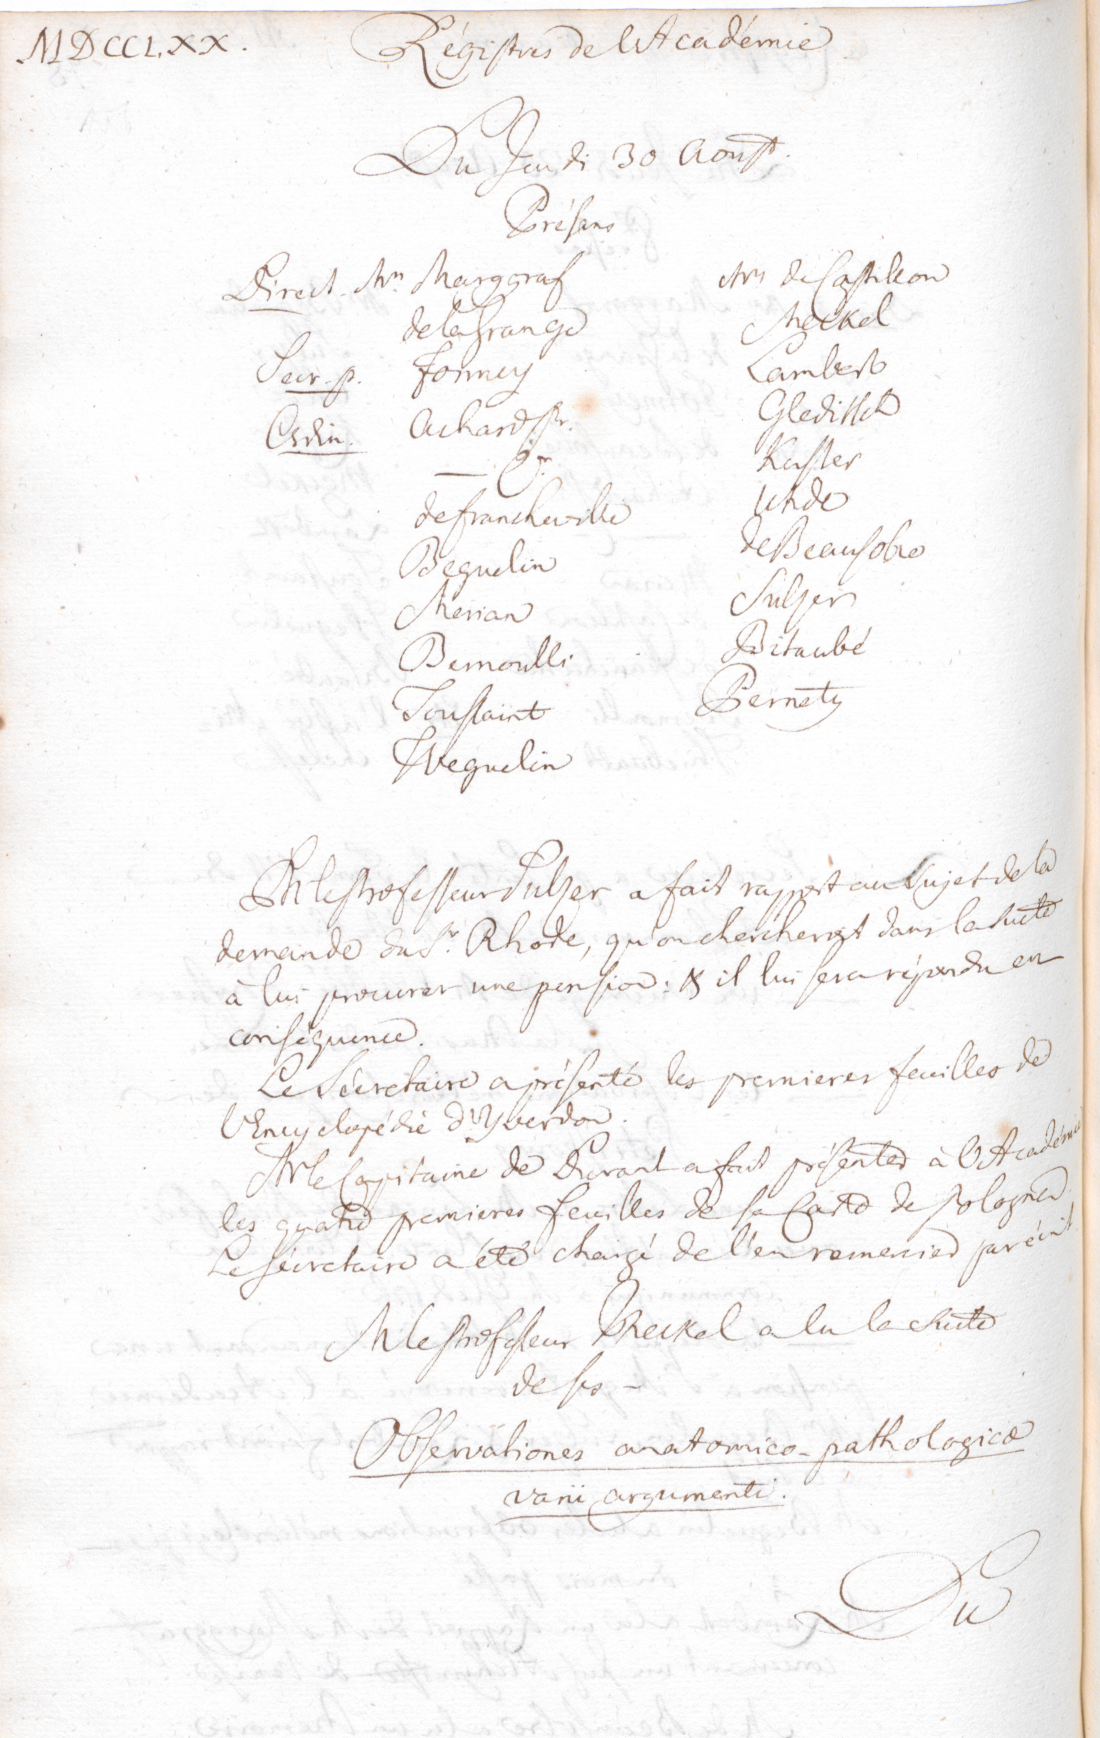 MDCCLXX.
Régistres de l'Académie
Du Jeudi 30 Aoust.
Présens
Direct. Mrs Marggraf
de la Grange
Secr. p. Formey
Ordin. Achard Sr.
— Jr.
de Francheville
Beguelin
Merian
Bernoulli
Toussaint
Weguelin
Mrs de Castillon
Meckel
Lambert
Gleditsch
Kuster
Uhde
de Beausobre
Sulzer
Bitaubé
Pernety
M le Professeur Sulzer a fait rapport au Sujet de la
demande du Sr. Rhode, qu'on chercheroit dans la suite
à lui procurer une pension: & il lui sera répondu en
conséquence.
Le Sécretaire a présenté les premieres feuilles de
l'Encyclopédie d'Yverdon.
M le Capitaine de Durant a fait présenter à l'Académie
les quatre premieres feuilles de sa Carte de Pologne.
Le Sécretaire a été chargé de l'en remercier par écrit.
M le Professeur Meckel a lu la suite
de ses —
Observationes anatomico-pathologicæ
varii argumenti.
Du